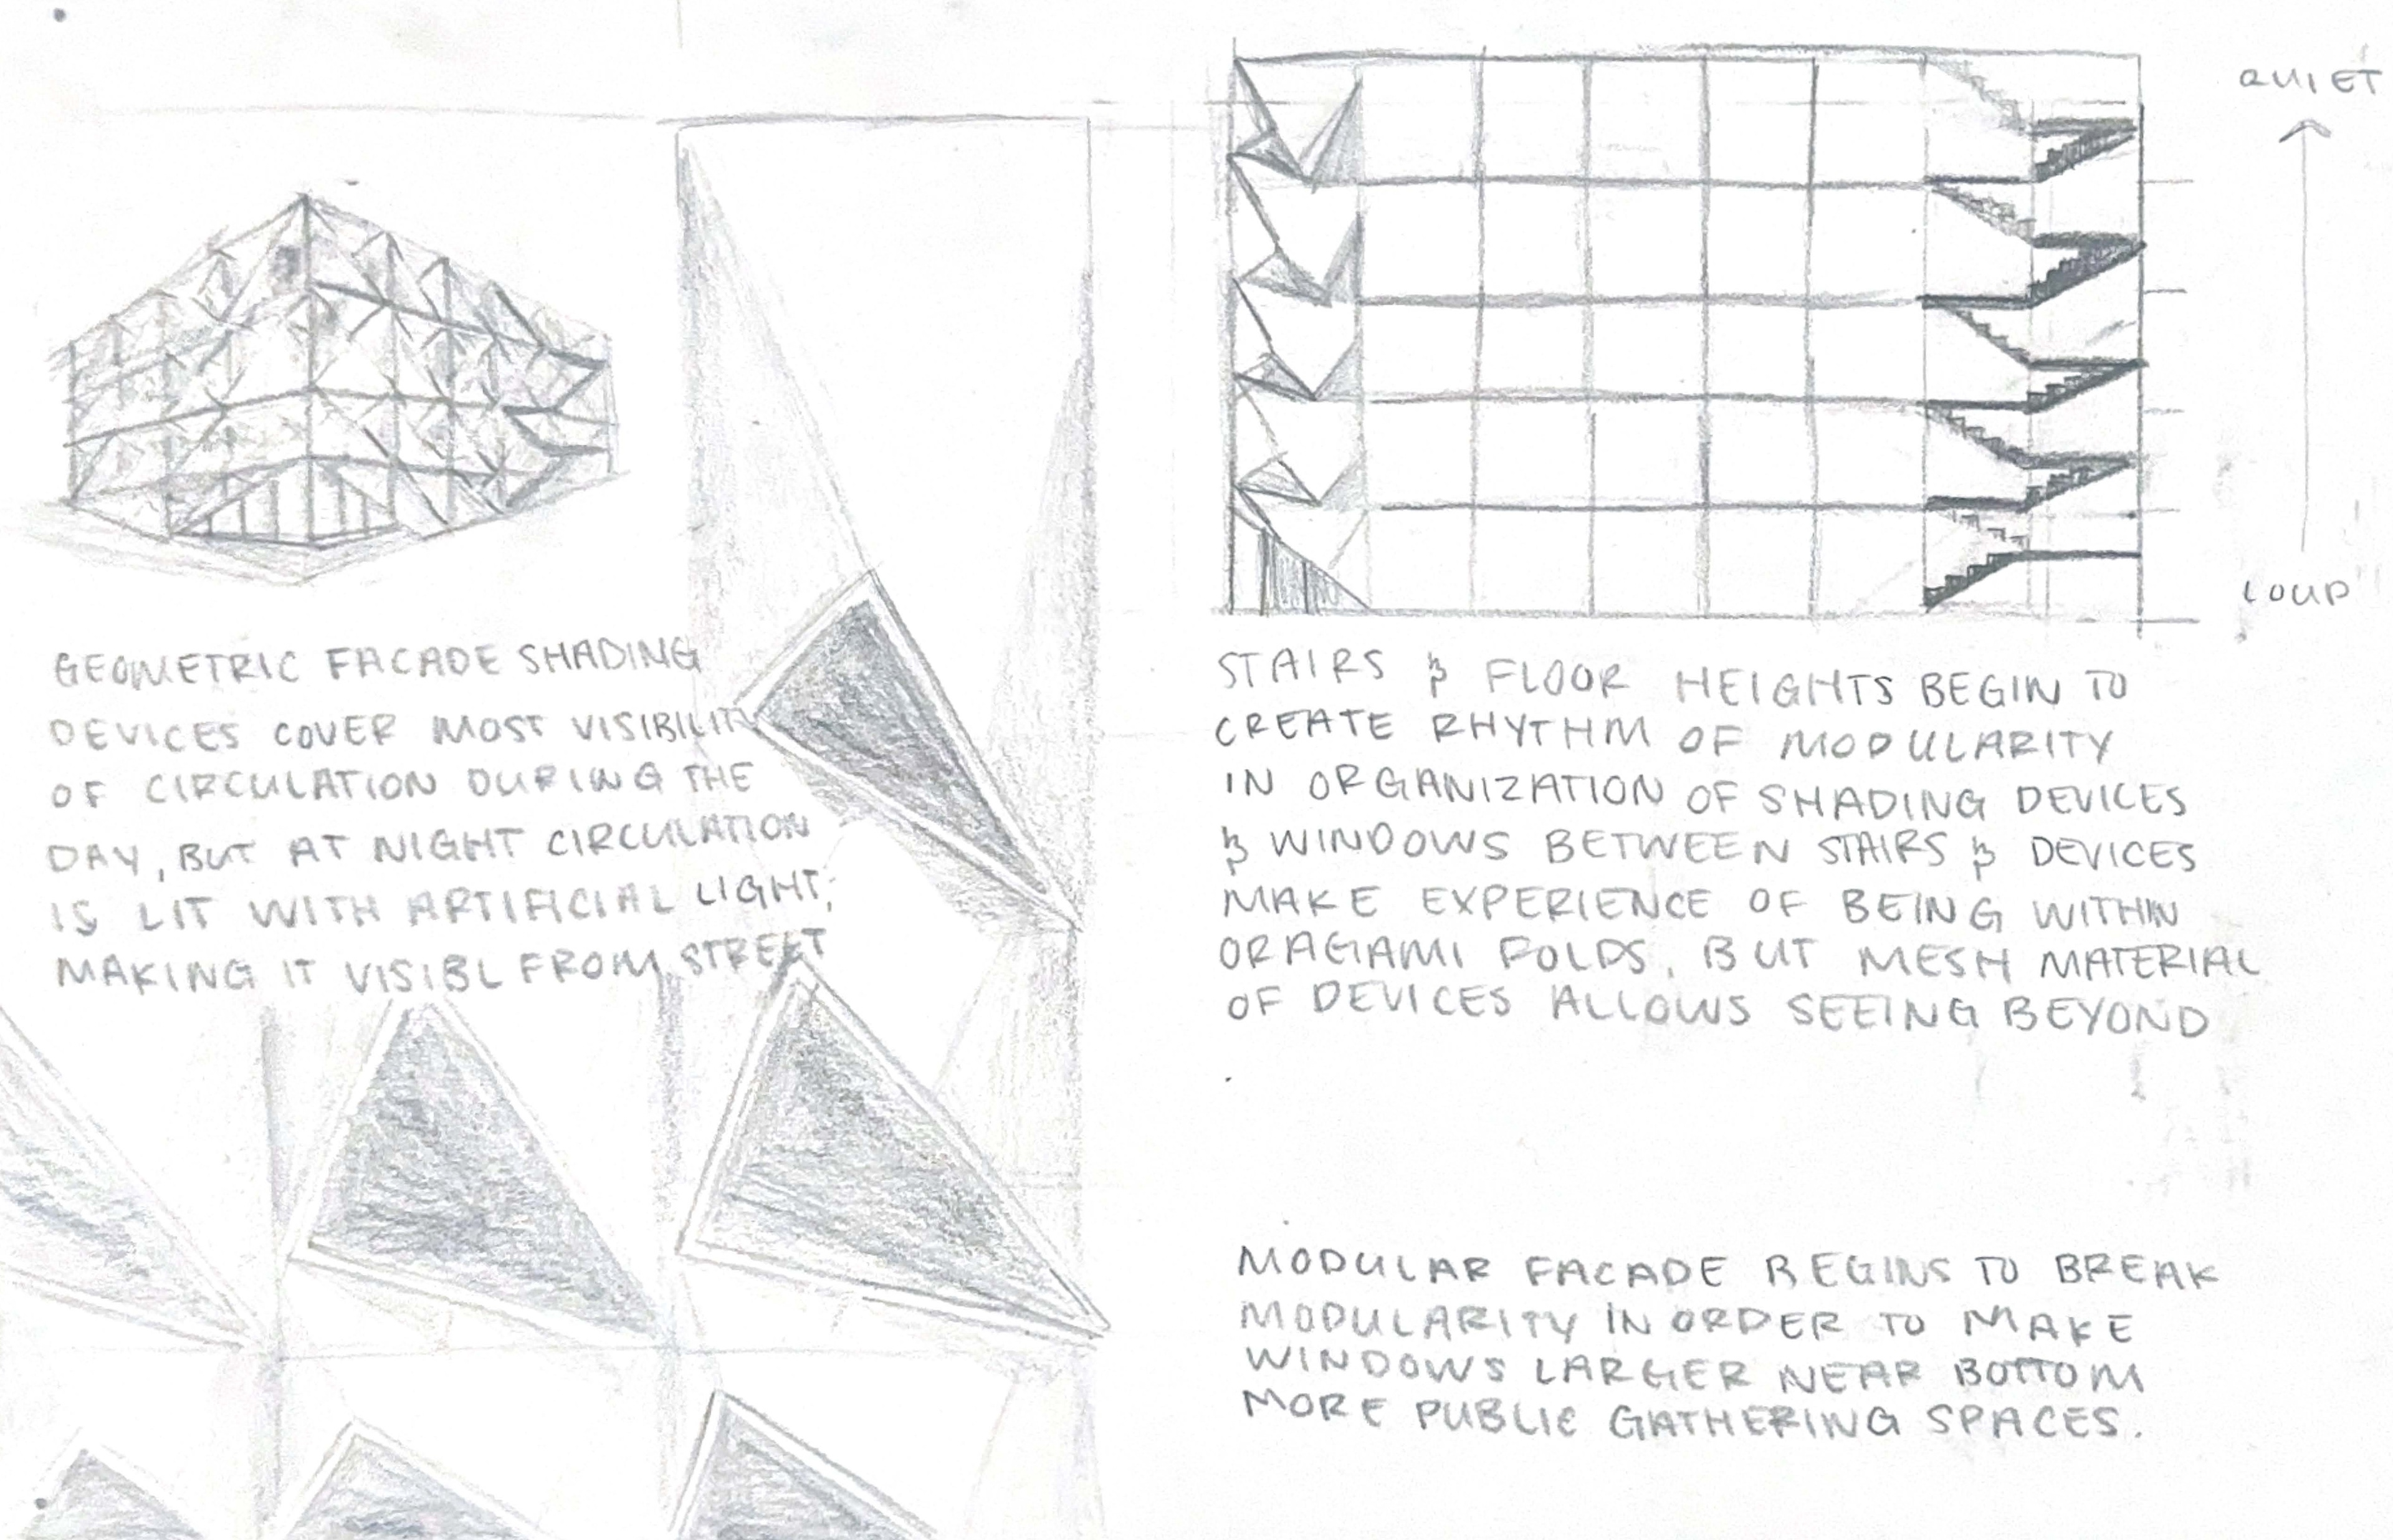 QUIET
LOUD
GEOMETRIC FACADE SHADING
DEVICES COVER MOST VISIBILITY
OF CIRCULATION DURING THE
DAY, BUT AT NIGHT CIRCULATION
IS LIT WITH ARTIFICIAL LIGHT;
MAKING IT VISIBL FROM STREET
STAIRS & FLOOR HEIGHTS BEGIN TO
CREATE RHYTHM OF MODULARITY
IN ORGANIZATION OF SHADING DEVICES
& WINDOWS BETWEEN STAIRS & DEVICES
MAKE EXPERIENCE OF BEING WITHIN
ORAGAMI FOLDS, BUT MESH MATERIAL
OF DEVICES ALLOWS SEEING BEYOND
MODULAR FACADE BEGINS TO BREAK
MODULARITY IN ORDER TO MAKE
WINDOWS LARGER NEAR BOTTOM
MORE PUBLIC GATHERING SPACES.